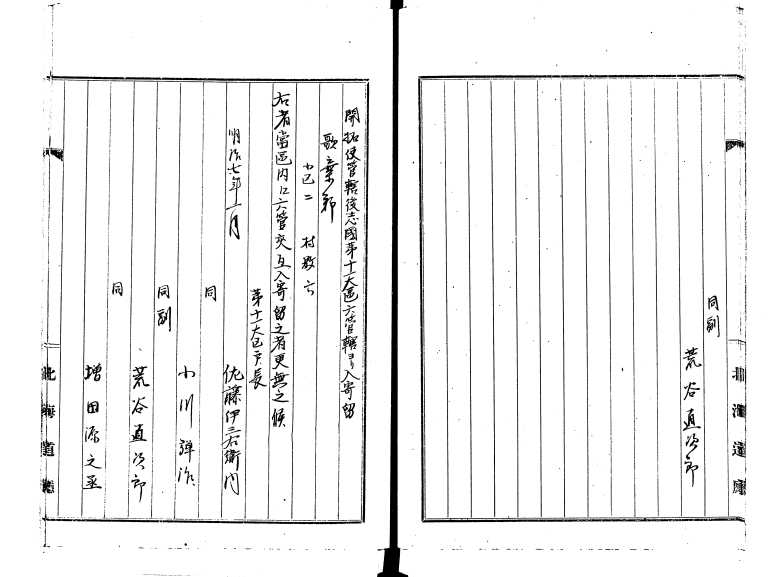 同副
荒谷直次郎
北海道庁
開拓使管轄後志國第十一大區六管轄ヨリ入寄留
歌棄郡
小区二 村数六
右者當區内江六管交互入寄留之者更無之候
明治七年一月
第十一大区戸長
佐藤伊三右衛門
同
小川弾治
同副
荒谷直次郎
同
増田源之丞
北海道廳